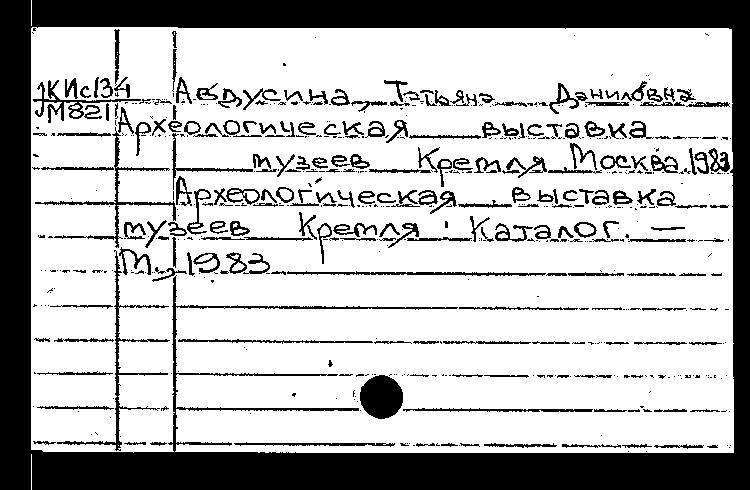 КИс134 Авдусина, Татьяна Даниловна
М821 Археологическая выставка
музеев Кремля. Москва. 1983
Археологическая выставка
музеев Кремля : Каталог. —
М., 1983